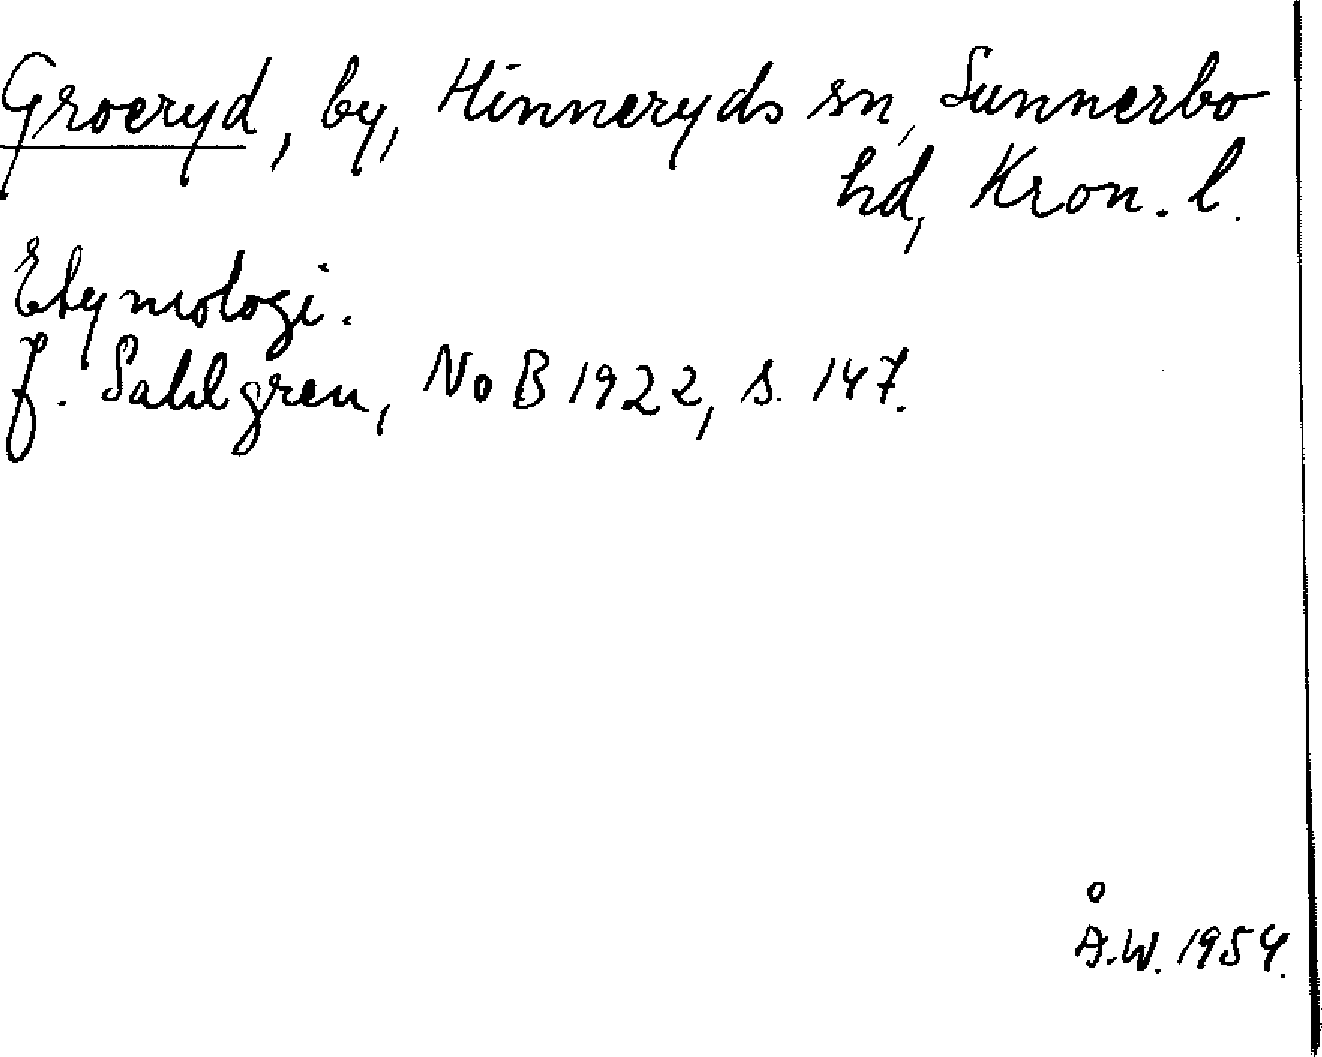 Groeryd, by, Hinneryds sn, Sunnerbo
hd, Kron. l.
Etymologi.
J. Sahlgren, NoB 1922, s. 147.
Å.W. 1954.